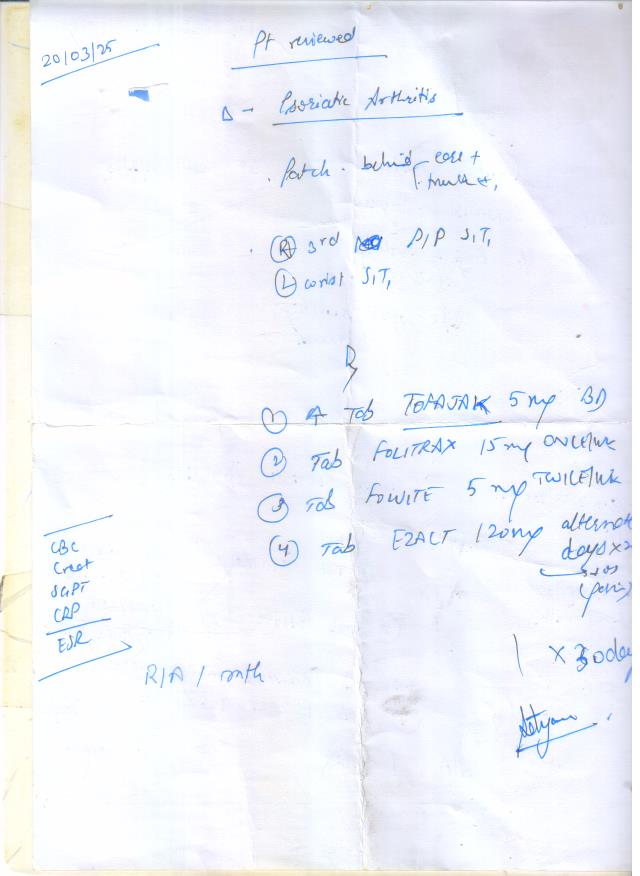 20/03/25
Pt reviewed
Δ - Psoriatic Arthritis
. Patch . behind ears +
trunk +
. (R) 3rd PIP S1T1
(L) wrist S1T1
R
(1) Tab TOFAJAK 5 mg BD
(2) Tab FOLITRAX 15 mg ONCE/WK
(3) Tab FOLVITE 5 mg TWICE/WK
(4) Tab EZACT 120 mg alternate
days x 2
SOS
(pain)
CBC
Creat
SGPT
CRP
ESR
x 30 day
R/A 1 mnth